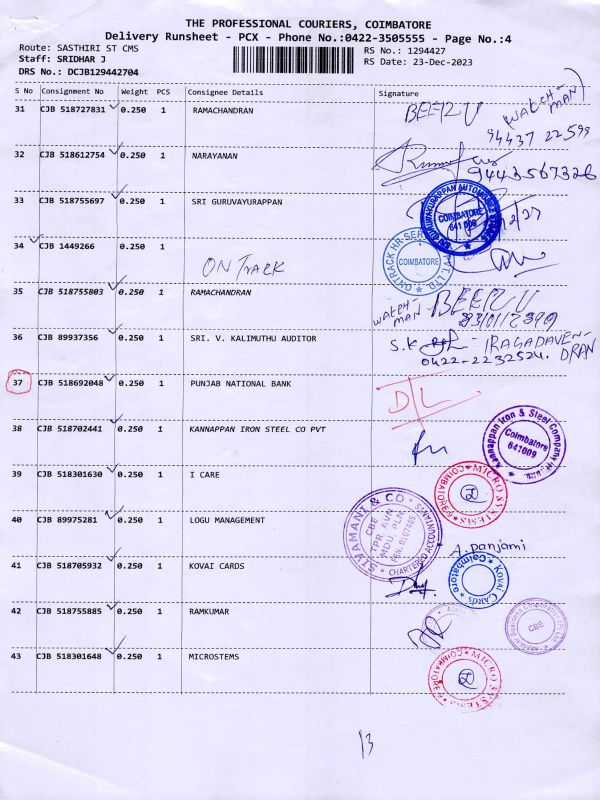 THE PROFESSIONAL COURIERS, COIMBATORE
Delivery Runsheet - PCX - Phone No.:0422-3505555 - Page No.:4
Route: SASTHIRI ST CMS RS No.: 1294427
Staff: SRIDHAR J RS Date: 23-Dec-2023
DRS No.: DCJB129442704
S No Consignment No Weight PCS Consignee Details Signature
31 CJB 518727831 0.250 1 RAMACHANDRAN BEERU WATCH-MAN
94437 22599
32 CJB 518612754 0.250 1 NARAYANAN
9443567326
33 CJB 518755697 0.250 1 SRI GURUVAYURAPPAN
COIMBATORE 641009
34 CJB 1449266 0.250 1 ON TRACK
ONTRACK HR SER PVT. LTD. COIMBATORE
35 CJB 518755803 0.250 1 RAMACHANDRAN WATCH-MAN BEERU
36 CJB 89937356 0.250 1 SRI. V. KALIMUTHU AUDITOR S.K
0422-2232524.
37 CJB 518692048 0.250 1 PUNJAB NATIONAL BANK D/L
38 CJB 518702441 0.250 1 KANNAPPAN IRON STEEL CO PVT
Kannappan Iron & Steel Company Coimbatore 641009
39 CJB 518301630 0.250 1 I CARE
MICRO SYSTEMS COIMBATORE
40 CJB 89975281 0.250 1 LOGU MANAGEMENT
& CO CHARTERED ACCOUNTANTS CBE TPR. AVN MDU. PLN.
41 CJB 518705932 0.250 1 KOVAI CARDS A. Panjami
KOVAI CARDS Coimbatore
42 CJB 518755885 0.250 1 RAMKUMAR
CBE
43 CJB 518301648 0.250 1 MICROSTEMS
MICRO SYSTEMS COIMBATORE
13